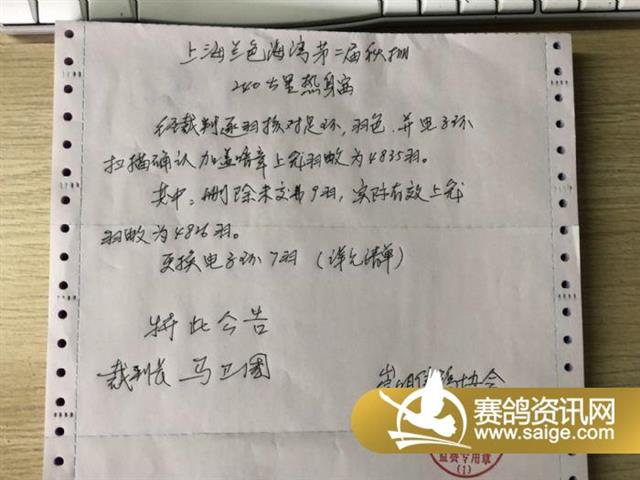 上海兰色海湾第二届秋棚
240公里热身赛
经裁判逐羽核对足环,羽色,并电子环
扫描确认加盖暗章上笼羽数为4835羽。
其中:删除未交费9羽,实际有效上笼
羽数为4826羽。
更换电子环7羽 (详见清单)
特此公告
裁判长 马卫国
崇明信鸽协会
赛鸽资讯网
www.saige.com
监赛专用章
(1)